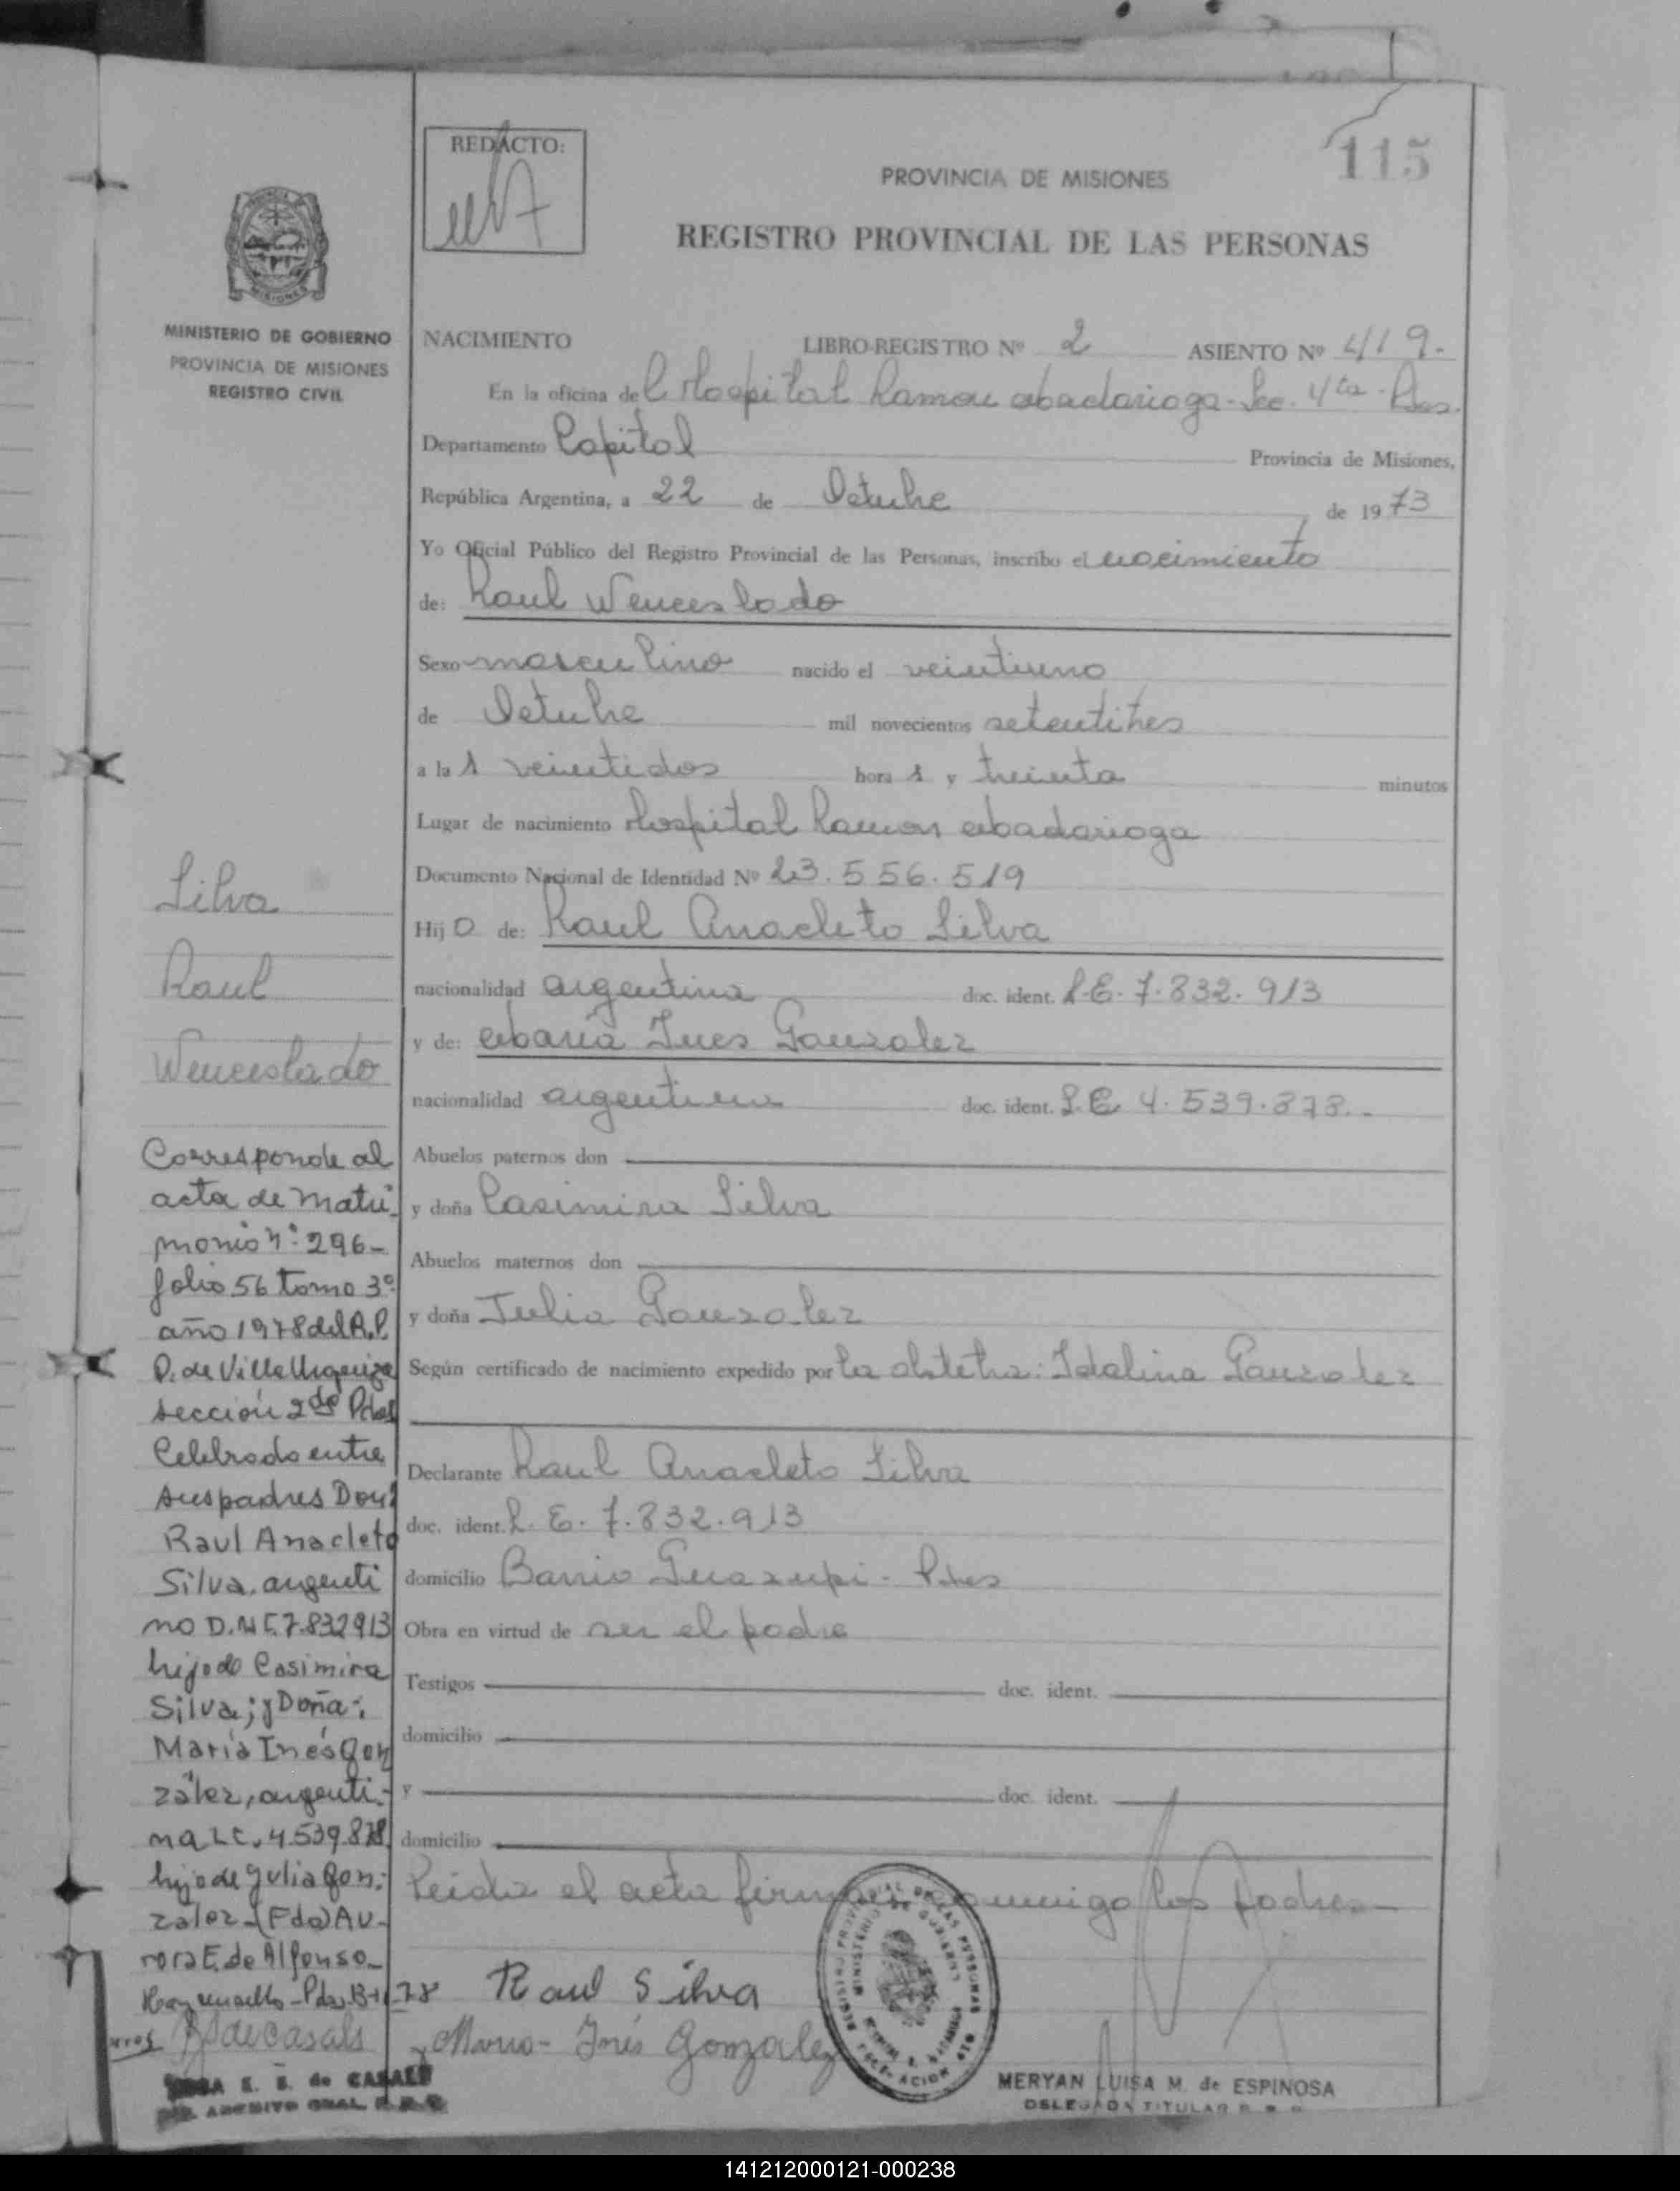 115
REDACTO:
PROVINCIA DE MISIONES
REGISTRO PROVINCIAL DE LAS PERSONAS
MISIONES
MINISTERIO DE GOBIERNO
PROVINCIA DE MISIONES
REGISTRO CIVIL
NACIMIENTO LIBRO-REGISTRO Nº 2 ASIENTO Nº 419.-
En la oficina del Hospital Ramon Madariaga - Sec. 4ta - Pdas.
Departamento Capital Provincia de Misiones,
República Argentina, a 22 de Octubre de 1973
Yo Oficial Público del Registro Provincial de las Personas, inscribo el nacimiento
de: Raul Wenceslado
Sexo masculino nacido el veintiuno
de Octubre mil novecientos setentitres
a las veintidos horas y treinta minutos
Lugar de nacimiento Hospital Ramon Madariaga
Documento Nacional de Identidad Nº 23.556.519
Hijo de: Raul Anacleto Silva
nacionalidad argentina doc. ident. L.E. 7.832.913
y de: Maria Ines Gonzalez
nacionalidad argentina doc. ident. L.C. 4.539.878.-
Abuelos paternos don
y doña Casimira Silva
Abuelos maternos don
y doña Julia Gonzalez
Según certificado de nacimiento expedido por la obstetra: Idalina Gonzalez
Declarante Raul Anacleto Silva
doc. ident. L.E. 7.832.913
domicilio Barrio Guazupi - Pdas
Obra en virtud de ser el padre
Testigos doc. ident.
domicilio
y doc. ident.
domicilio
Leida el acta firman conmigo los padres
Raul Silva
Maria Inés Gonzalez
MERYAN LUISA M. de ESPINOSA
DELEGADA TITULAR R. P. P.
Silva
Raul
Wenceslado
Corresponde al
acta de matri
monio nº 296-
folio 56 tomo 3º
año 1978 del R.P.
P. de Villa Urquiza
sección 2da Pdas
Celebrado entre
sus padres Don:
Raul Anacleto
Silva, argenti
no D.N.I. 7.832913
hijo de Casimira
Silva; y Doña:
María Inés Gon
zález, argenti-
na L.C. 4.539.878
hija de Julia Gon-
zález-(Fdo) Au-
rora E. de Alfonso-
de CASALS
141212000121-000238